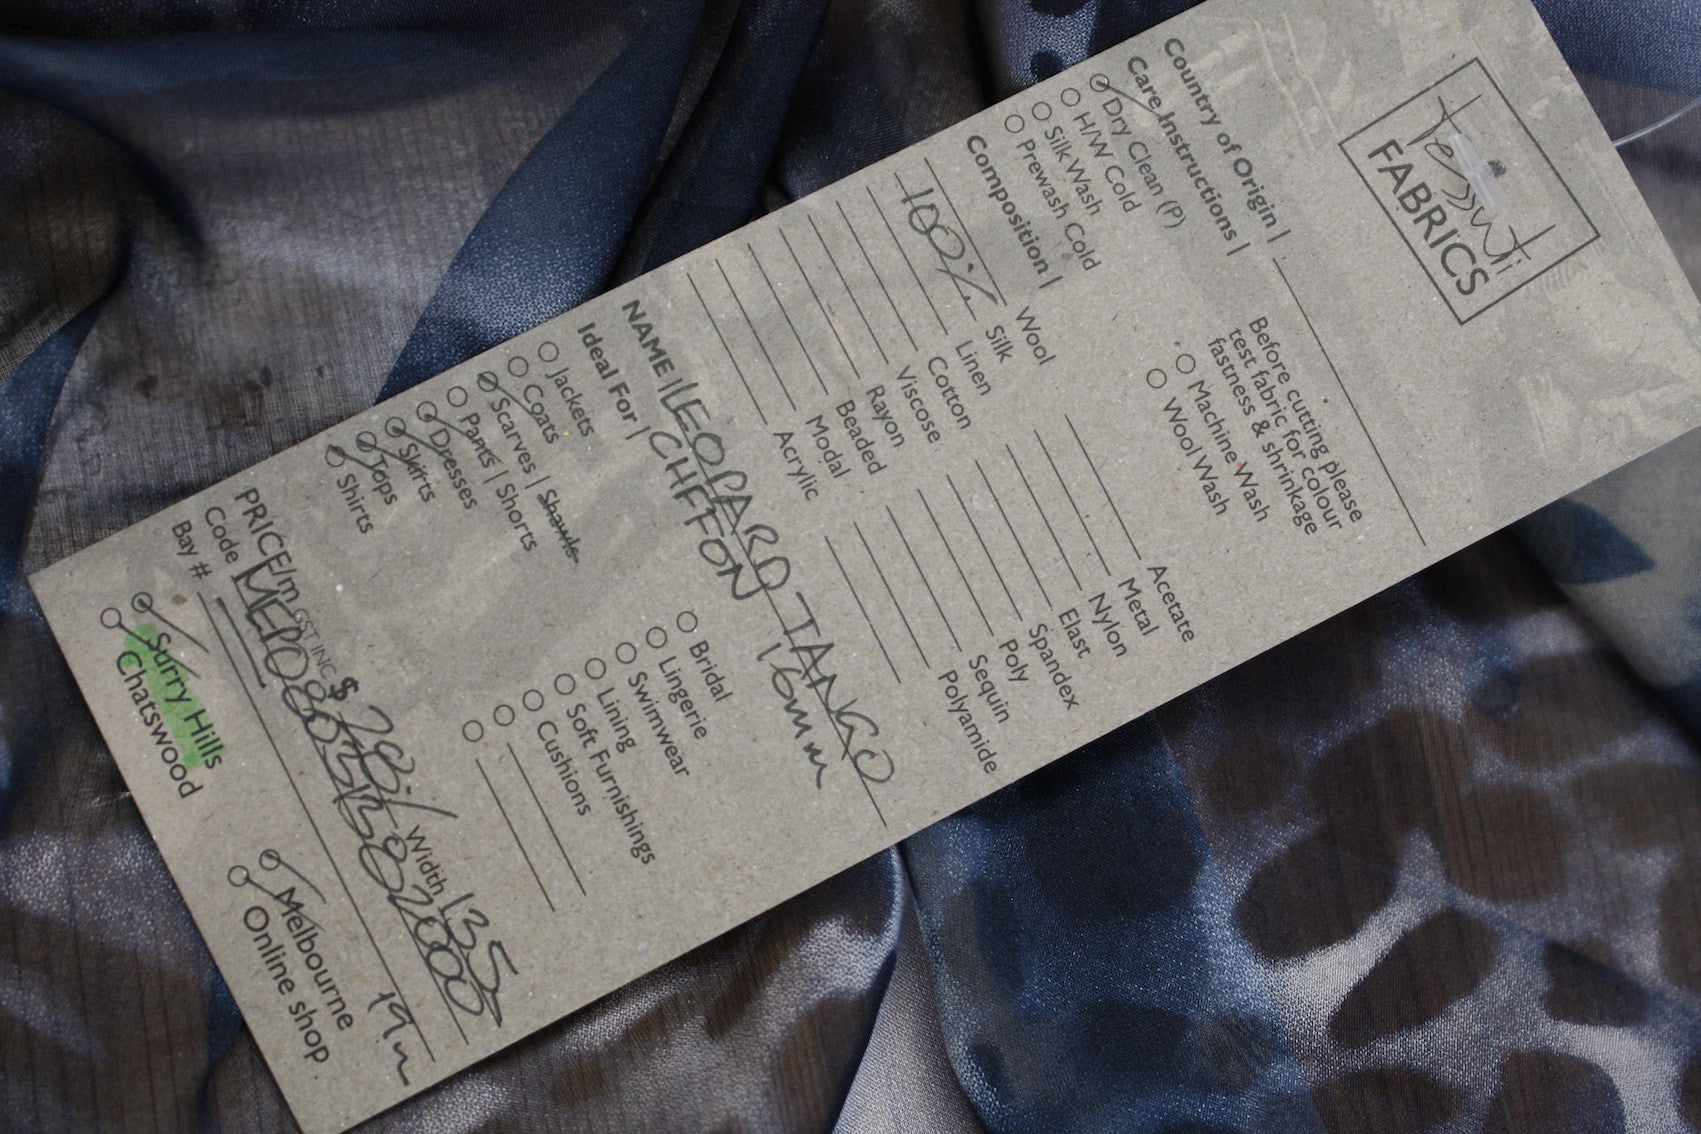 Tessuti
FABRICS
Country of Origin |
Care Instructions |
Dry Clean (P)
H/W Cold
Silk Wash
Prewash Cold
Before cutting please
test fabric for colour
fastness & shrinkage
Machine Wash
Wool Wash
Composition |
Wool
100% Silk
Linen
Cotton
Viscose
Rayon
Beaded
Modal
Acrylic
Acetate
Metal
Nylon
Elast
Spandex
Poly
Sequin
Polyamide
NAME | LEOPARD TANGO
CHFFON 16mm
Ideal For |
Jackets
Coats
Scarves | Shawls
Pants | Shorts
Dresses
Skirts
Tops
Shirts
Bridal
Lingerie
Swimwear
Lining
Soft Furnishings
Cushions
PRICE/m GST INC $ 28./ Width 135
Code
Bay # 19m
Surry Hills
Chatswood
Melbourne
Online shop